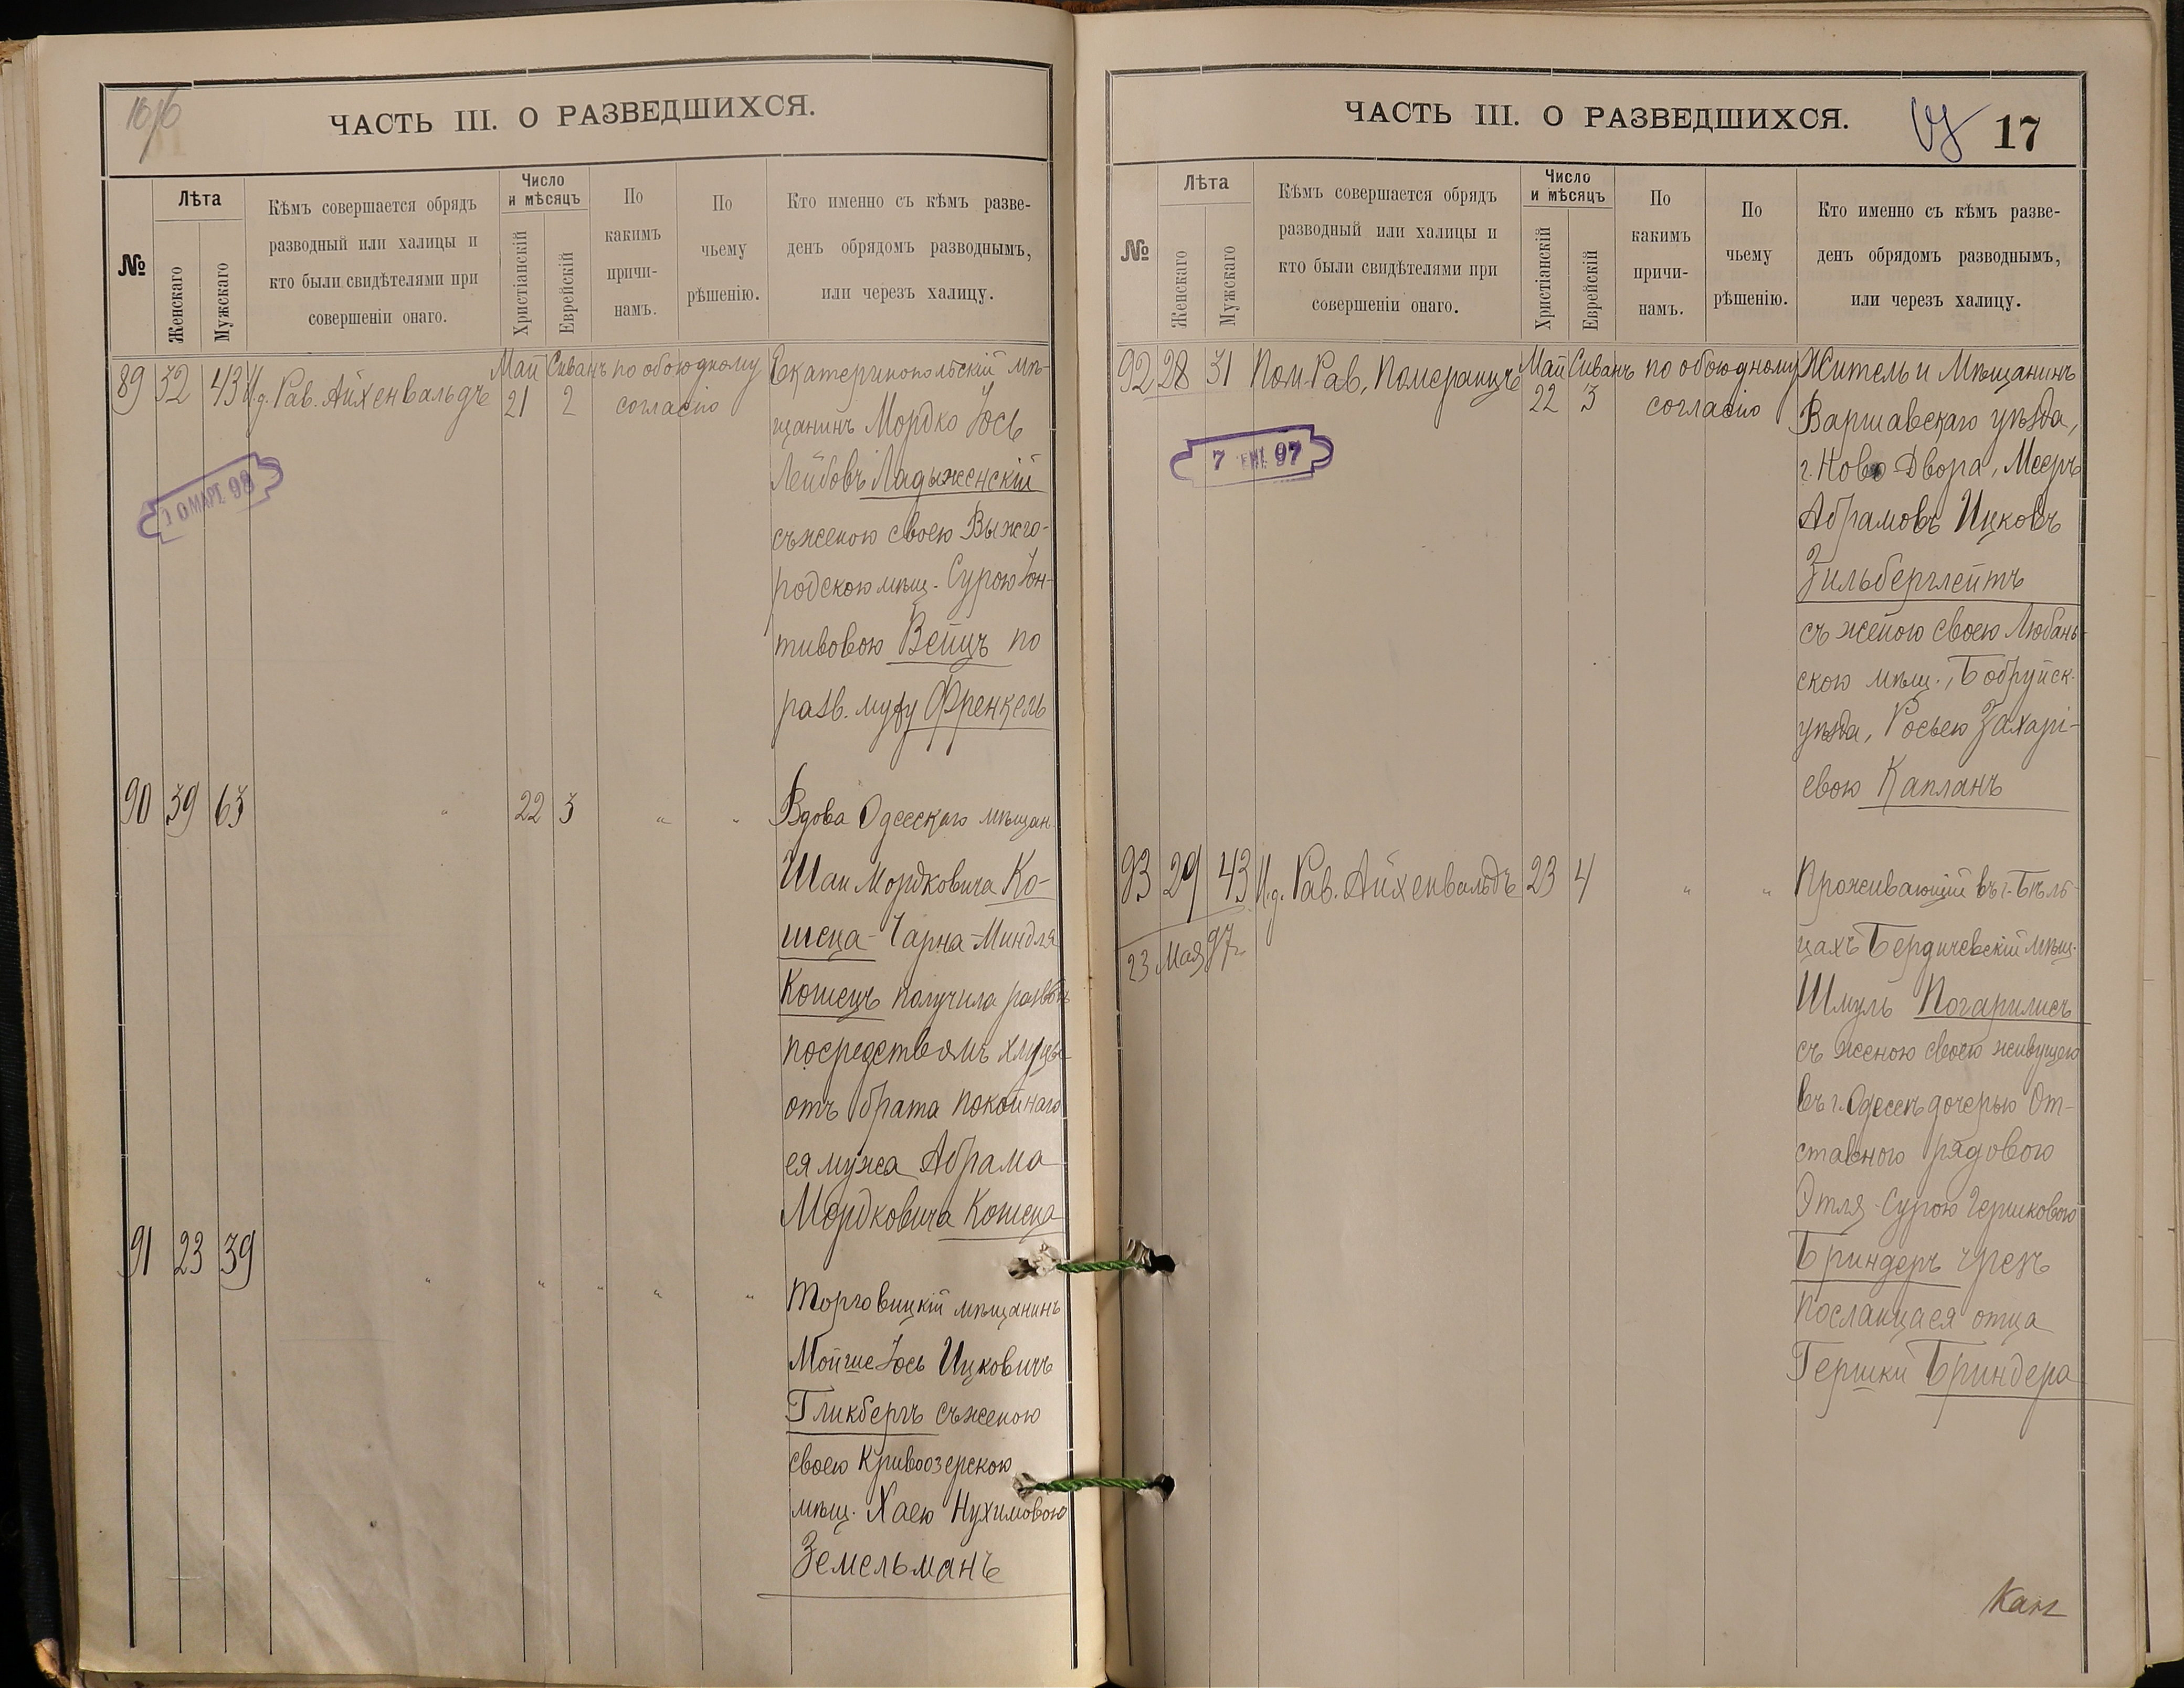 16/6
ЧАСТЬ III. О РАЗВЕДШИХСЯ.
№
Лѣта
Женскаго
Мужскаго
Кѣмъ совершается обрядъ
разводный или халицы и
кто были свидѣтелями при
совершеніи онаго.
Число
и мѣсяцъ
Христіанскій
Еврейскій
По
какимъ
причи-
намъ.
По
чьему
рѣшенію.
Кто именно съ кѣмъ разве-
денъ обрядомъ разводнымъ,
или черезъ халицу.
89 32 43 И.д. Рав. Айхенвальдъ Май 21 Сиванъ 2 по обоюдному согласію
Екатеринопольскій мѣ-
щанинъ Мордко Іось
Лейбовъ Ладыженскій
съ женою своею Выжго-
родскою мѣщ. Сурою Іон-
тивовою Вейцъ по
разв. мужу Френкель
10 МАРТ 98
90 39 63 " 22 3 " "
Вдова Одесскаго мѣщан.
Шаи Мордковича Ко-
шеца - Чарна-Миндля
Кошецъ получила разводъ
посредствомъ халицы
отъ брата покойнаго
ея мужа Абрама
Мордковича Кошеца
91 23 39 " " " " "
Торговицкій мѣщанинъ
Мойше Іось Ицковичъ
Гликбергъ съ женою
своею Кривоозерскою
мѣщ. Хаею Нухимовою
Земельманъ
ЧАСТЬ III. О РАЗВЕДШИХСЯ.
17
№
Лѣта
Женскаго
Мужскаго
Кѣмъ совершается обрядъ
разводный или халицы и
кто были свидѣтелями при
совершеніи онаго.
Число
и мѣсяцъ
Христіанскій
Еврейскій
По
какимъ
причи-
намъ.
По
чьему
рѣшенію.
Кто именно съ кѣмъ разве-
денъ обрядомъ разводнымъ,
или черезъ халицу.
92 28 31 Пом. Рав. Померанцъ Май 22 Сиванъ 3 по обоюдному согласію
Житель и Мѣщанинъ
Варшавскаго уѣзда,
г. Ново Двора, Мееръ
Абрамовъ Ицковъ
Зильберглейтъ
съ женою своею Любань-
скою мѣщ., Бобруйск.
уѣзда, Росьею Захарі-
евою Капланъ
7 97
93 29 43 И.д. Рав. Айхенвальдъ 23 4 " "
23 Мая 97 г.
Проживающій въ г. Бѣль-
цахъ Бердичевскій мѣщ.
Шмуль Погарилисъ
съ женою своею живущею
въ г. Одессѣ дочерью От-
ставного рядового
Этля-Сурою Гершковою
Бриндеръ чрезъ
посланца ея отца
Гершки Бриндера